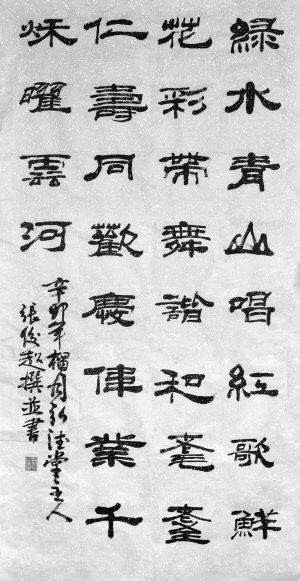 綠水青山唱紅歌鮮
花彩帶舞諧和耄耋
仁壽同歡慶偉業千
秌曜雲河
辛卯年榴月堂主人
張俊撰並書